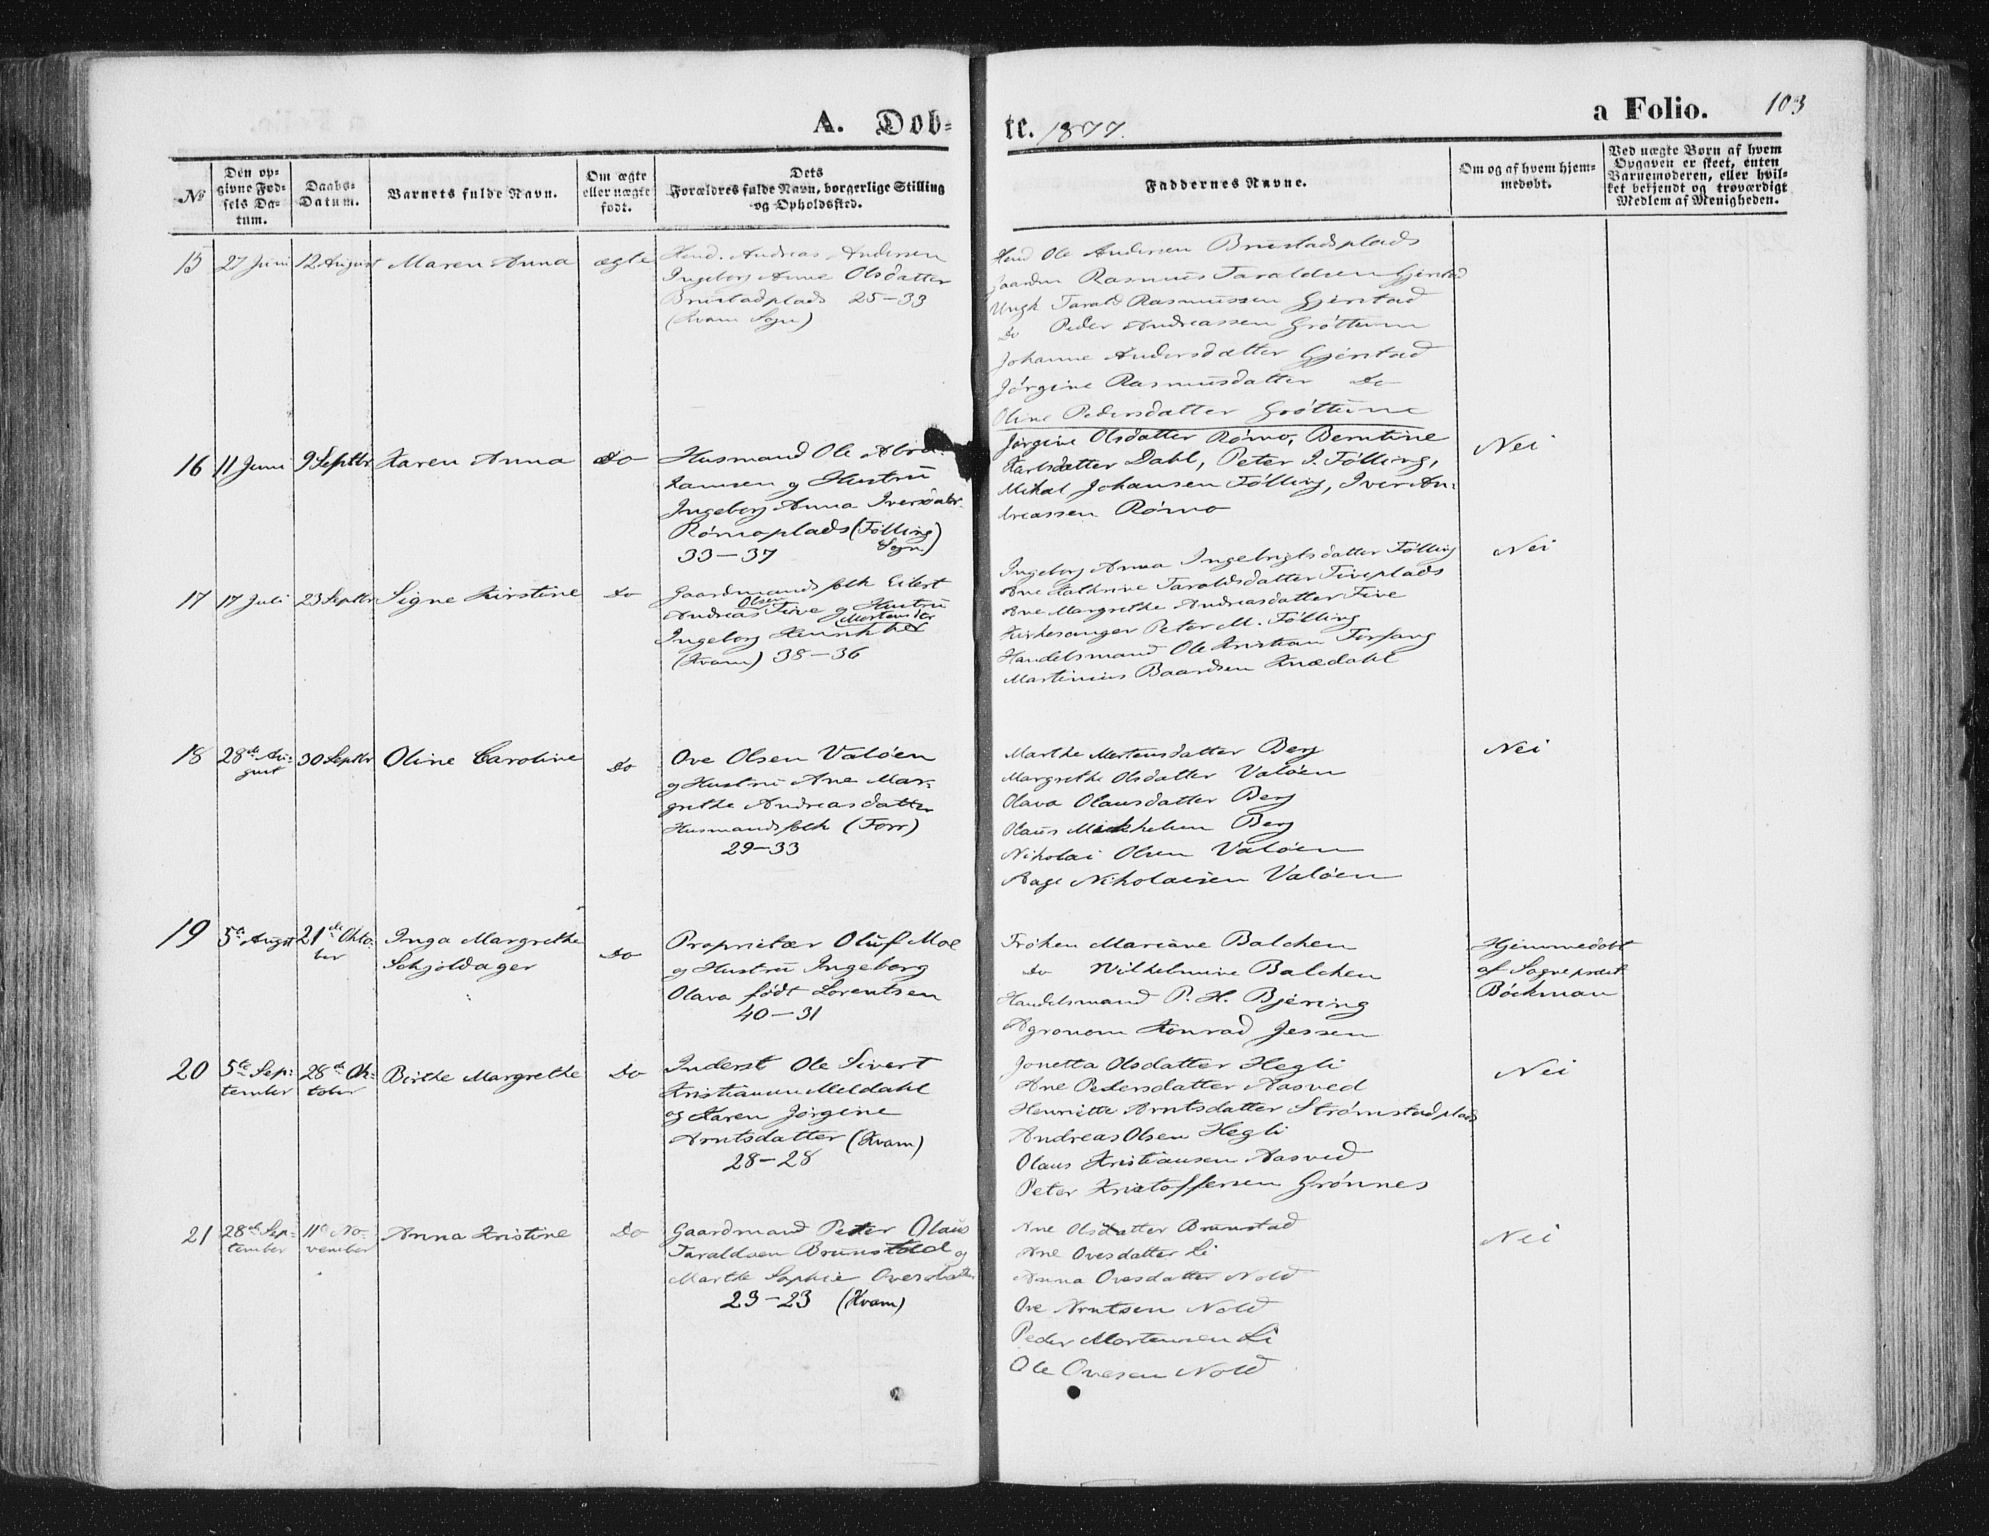 A. Døb-
te. 1877.
a Folio. 103
No
Den op-
givne Fød-
sels Da-
tum.
Daabs-
Datum.
Barnets fulde Navn.
Om ægte
eller uægte
født.
Dets
Forældres fulde Navn, borgerlige Stilling
og Opholdssted.
Faddernes Navne.
Om og af hvem hjem-
medøbt.
Ved uægte Børn af hvem
Opgaven er skeet, enten
Barnemoderen, eller hvil-
ket bekjendt og troværdigt
Medlem af Menigheden.
15
27 Juni
12 August
Maren Anna
ægte
Husd. Andreas Andersen
Ingeborg Anne Olsdatter
Brustadplads 25-33
(Kvam Sogn)
Husd Ole Andersen Brustadplads
Gaardm Rasmus Taraldsen Gjerstad
Ungk Tarald Rasmussen Gjerstad
Do Peder Andreassen Grøttum
Johanne Andersdatter Gjerstad
Jørgine Rasmusdatter Do
Oline Pedersdatter Grøttum
16
11 Juni
9 Septbr
Karen Anna
Do
Husmand Ole Abra-
hamsen og Hustru
Ingeborg Anna Iversdatr.
Rømoplads (Følling
Sogn)
33-37
Jørgine Olsdatter Rømo, Berntine
Karlsdatter Dahl, Peter J. Følling,
Mikal Johansen Følling, Iver An-
dreassen Rømo
Nei
17
17 Juli
23 Septbr
Signe Kirstine
Do
Gaardmandsfolk Eilert
Olsen
Andreas Five og Hustru
Mortensdtr
Ingeborg
(Kvam) 38-36
Ingeborg Anna Ingebrigtsdatter Følling
Ane Kathrine Taraldsdatter Fiveplads
Ane Margrethe Andreasdatter Five
Kirkesanger Peter M. Følling
Handelsmand Ole Kristian Forfang
Martinius Baardsen Knædahl
Nei
18
28de Au-
gust
30 Septbr
Oline Caroline
Do
Ove Olsen Valøen
og Hustru Ane Mar-
grethe Andreasdatter
Husmandsfolk (For)
29-33
Marthe Mortensdatter Berg
Margrethe Olsdatter Valøen
Olava Olausdatter Berg
Olaus Mickkelsen Berg
Nikolai Olsen Valøen
Aage Nikolaisen Valøen
Nei
19
5te August
21de Okto-
ber
Inga Margrethe
Schjoldager
Do
Proprietær Oluf Moe
og Hustru Ingeborg
Olava født Lorentsen
40-31
Frøken Mariane Balchen
Do Wilhelmine Balchen
Handelsmand P. H. Bjering
Agronom Konrad Jessen
Hjemmedøbt
af Sogneprest
Bøckman
20
5te Sep-
tember
28de Ok-
tober
Birthe Margrethe
Do
Inderst Ole Sivert
Kristiansen Meldahl
og Karen Jørgine
Arntsdatter (Kvam)
28-28
Jonetta Olsdatter Hegli
Ane Pedersdatter Aasved
Henriette Arntsdatter Strømstadplads
Andreas Olsen Hegli
Olaus Kristiansen Aasved
Peter Kristoffersen Grønnes
Nei
21
28de Sep-
tember
11te No-
vember
Anna Kristine
Do
Gaardmand Peter Olaus
Taraldsen Brunstad og
Marthe Sophie Ovesdatter
23-23 (Kvam)
Ane Olsdatter Brunstad
Ane Ovesdatter Li
Anna Ovesdatter Nold
Ove Arntsen Nold
Peder Mortensen Li
Ole Ovesen Nold
Nei